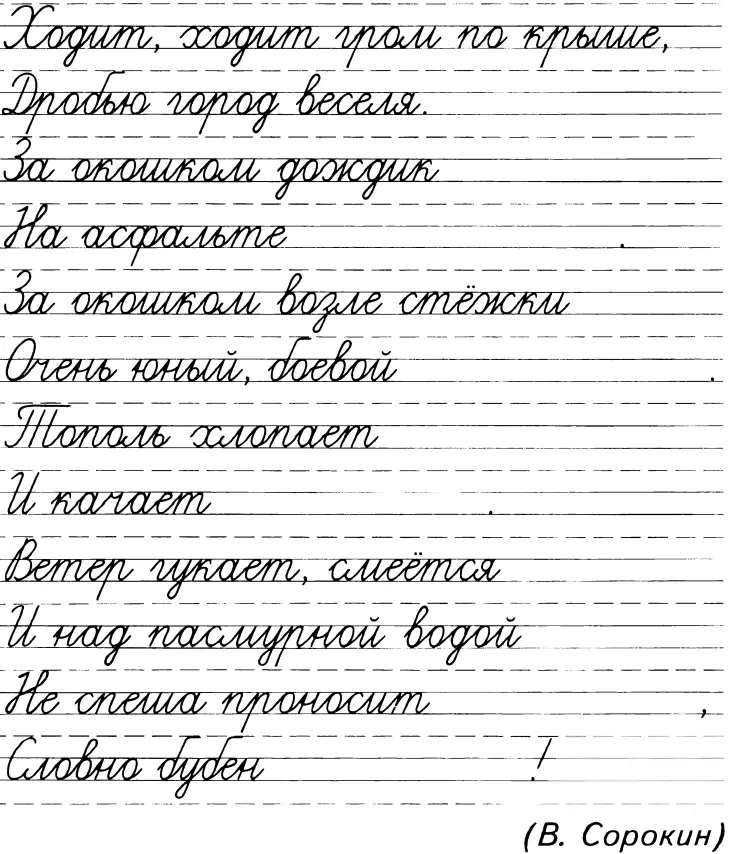 Ходит, ходит гром по крыше,
Дробью город веселя.
За окошком дождик
На асфальте .
За окошком возле стёжки
Очень юный, боевой .
Тополь хлопает
И качает .
Ветер гукает, смеётся
И над пасмурной водой
Не спеша проносит ,
Словно бубен !
(В. Сорокин)